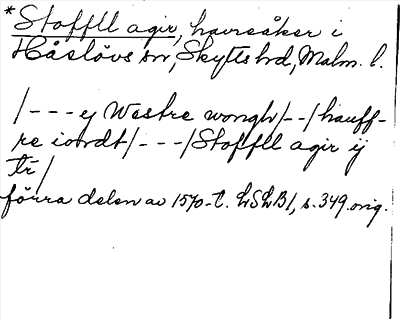 *Stoffll agir, havreåker i
Håslövs sn, Skytts hd, Malm. l.
/---ej Westre wongh/--/hauff-
re iordt/---/Stoffll agir ij
tr/
förra delen av 1570-t. LSLB1, s. 349. orig.